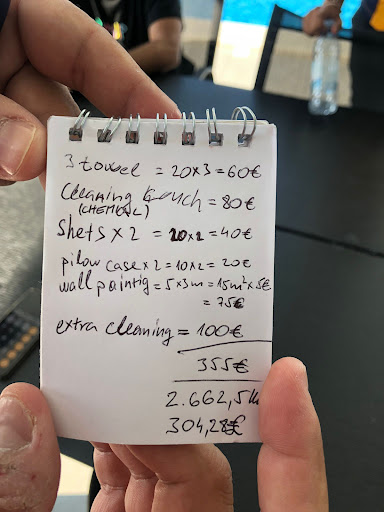 3 towel = 20x3 = 60€
Cleaning Couch = 80€
(CHEMICAL)
Shets x 2 = 20x2 = 40€
pilow case x2 = 10x2 = 20€
wall paintig = 5x3m = 15m² x 5€
= 75€
extra cleaning = 100€
355€
2.662,5
304,28€